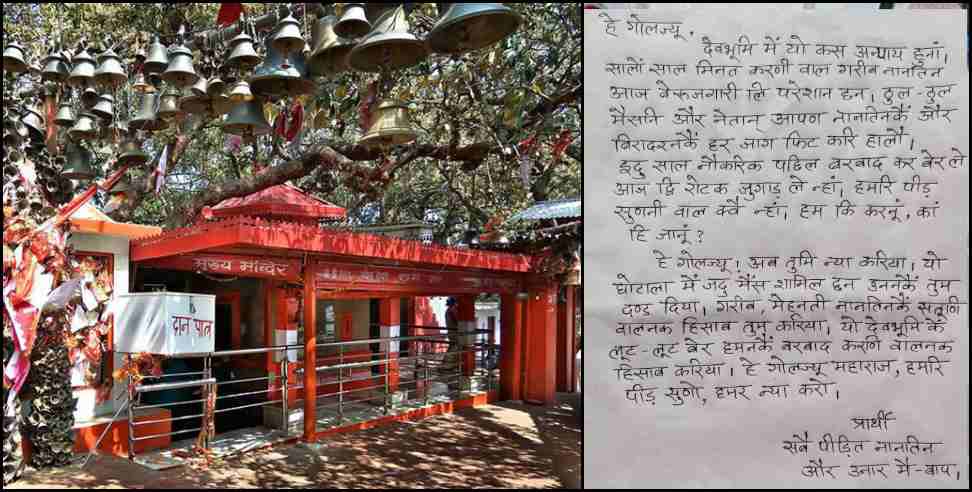 मुख्य मन्दिर
दान पात्र
हे गोलज्यू,
देवभूमि में यो कस अन्याय हुनां,
सालों साल मिनत करणी वाल गरीब नानतिन
आज बेरुजगारी लि परेशान छन। ठुल-ठुल
मैंसनि और नेतान् आपण नानतिनकैं और
बिरादरनकैं हर जाग फिट करि हालौ।
इदु साल नौकरिक पछिल बरबाद कर बेर ले
आज द्वि रोटक जुगाड़ ले न्हां, हमरि पीड़
सुणनी वाल क्वै न्हां, हम कि करनूं, कां
हि जानूं?
हे गोलज्यू! अब तुमि न्या करिया, यो
घोटाला में जदु मैंस शामिल छन उननकैं तुम
दण्ड दिया। गरीब, मेहनती नानतिनकैं सतूणि
वालनक हिसाब तुम करिया, यो देवभूमि कैं
लूट-लूट बेर हमनकैं बरबाद करणि वालनक
हिसाब करिया। हे गोलज्यू महाराज, हमरि
पीड़ सुणो, हमर न्या करो।
प्रार्थी
सबै पीड़ित नानतिन
और उनार मै-बाप,